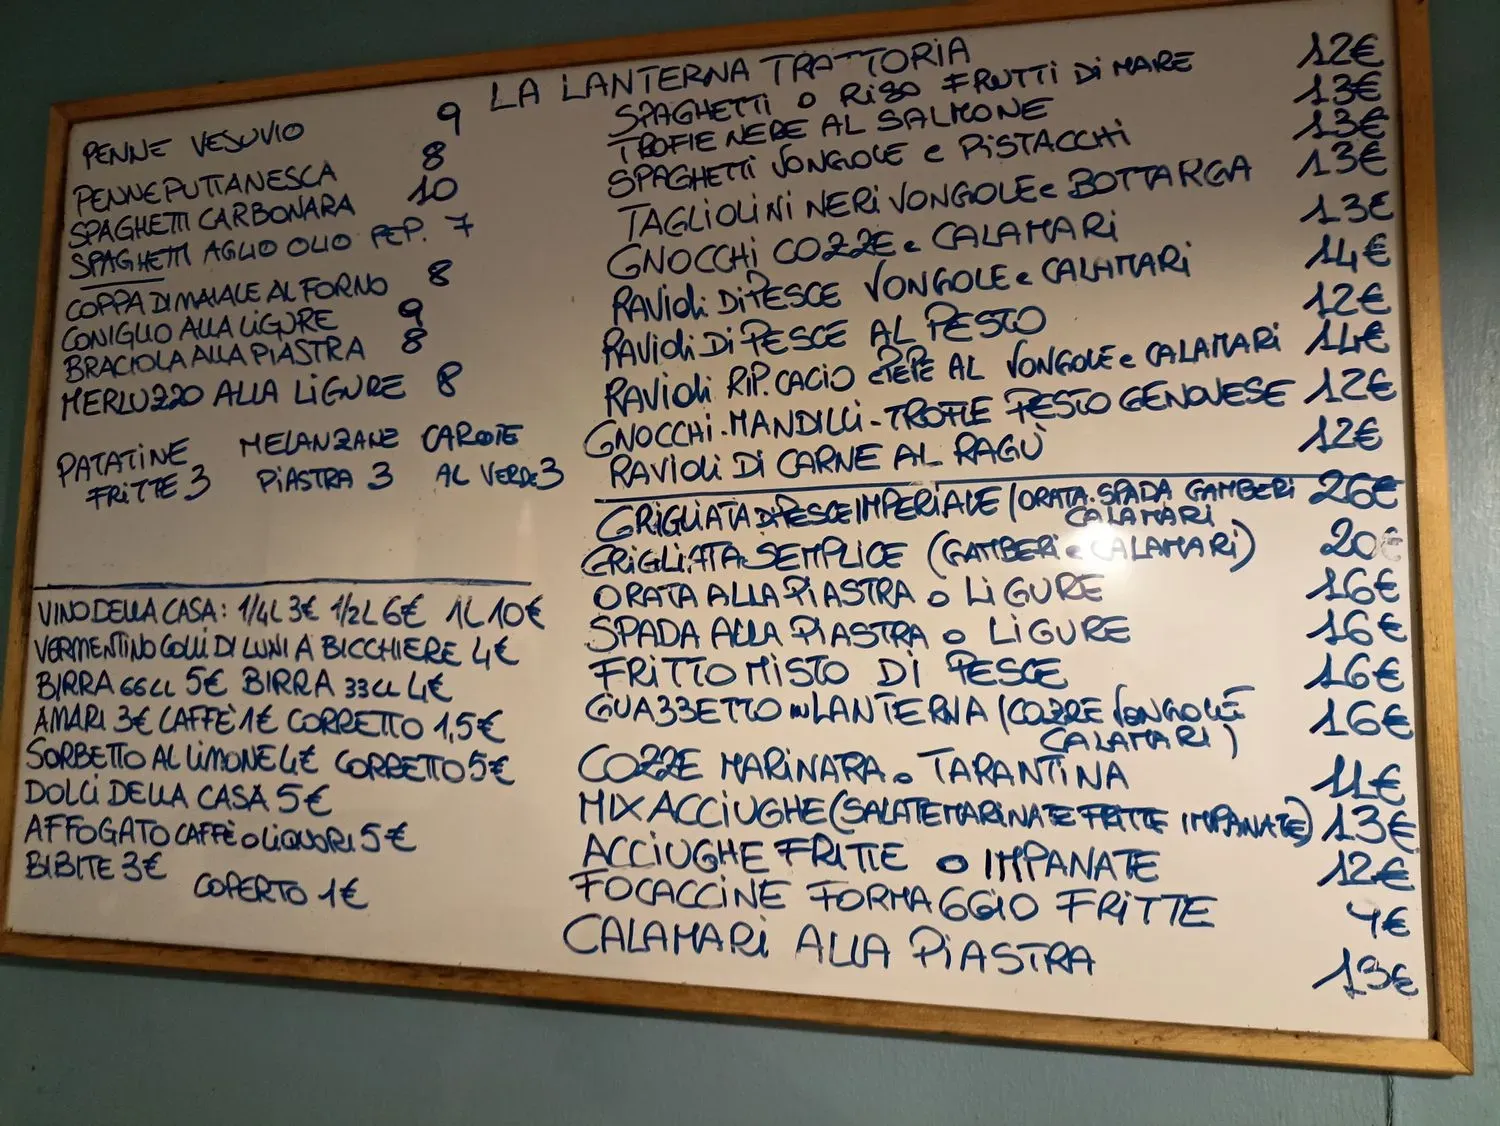 LA LANTERNA TRATTORIA
PENNE VESUVIO 9
PENNE PUTTANESCA 8
SPAGHETTI CARBONARA 10
SPAGHETTI AGLIO OLIO PEP. 7
COPPA DI MAIALE AL FORNO 8
CONIGLIO ALLA LIGURE 9
BRACIOLA ALLA PIASTRA 8
MERLUZZO ALLA LIGURE 8
PATATINE MELANZANE CAROTE
FRITTE 3 PIASTRA 3 AL VERDE 3
VINO DELLA CASA: 1/4L 3€ 1/2L 6€ 1L 10€
VERMENTINO COLLI DI LUNI A BICCHIERE 4€
BIRRA 66CL 5€ BIRRA 33CL 4€
AMARI 3€ CAFFÈ 1€ CORRETTO 1,5€
SORBETTO AL LIMONE 4€ CORRETTO 5€
DOLCI DELLA CASA 5€
AFFOGATO CAFFÈ O LIQUORI 5€
BIBITE 3€
COPERTO 1€
SPAGHETTI O RISO FRUTTI DI MARE 12€
TROFIE NERE AL SALMONE 13€
SPAGHETTI VONGOLE e PISTACCHI 13€
TAGLIOLINI NERI VONGOLE e BOTTARGA 13€
GNOCCHI COZZE e CALAMARI 13€
RAVIOLI DI PESCE VONGOLE e CALAMARI 14€
RAVIOLI DI PESCE AL PESTO 12€
RAVIOLI RIP. CACIO e PEPE AL VONGOLE e CALAMARI 14€
GNOCCHI - MANDILLI - TROFIE PESTO GENOVESE 12€
RAVIOLI DI CARNE AL RAGÙ 12€
GRIGLIATA DI PESCE IMPERIALE (ORATA. SPADA GAMBERI 26€
CALAMARI
GRIGLIATA SEMPLICE (GAMBERI e CALAMARI) 20€
ORATA ALLA PIASTRA O LIGURE 16€
SPADA ALLA PIASTRA O LIGURE 16€
FRITTO MISTO DI PESCE 16€
GUAZZETTO LANTERNA (COZZE VONGOLE 16€
CALAMARI)
COZZE MARINARA O TARANTINA 11€
MIX ACCIUGHE (SALATE MARINATE FRITTE IMPANATE) 13€
ACCIUGHE FRITTE O IMPANATE 12€
FOCACCINE FORMAGGIO FRITTE 4€
CALAMARI ALLA PIASTRA 13€